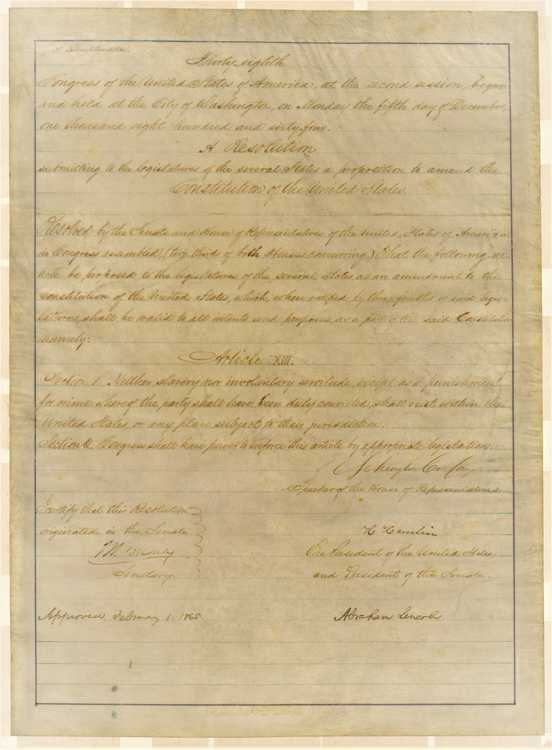 Thirty-eighth
Congress of the United States of America, at the second session, begun
and held at the City of Washington, on Monday the fifth day of December,
one thousand eight hundred and sixty-four.
A Resolution
submitting to the legislatures of the several States a proposition to amend the
Constitution of the United States.
Resolved by the Senate and House of Representatives of the United States of America
in Congress assembled, (two thirds of both Houses concurring,) That the following
will be proposed to the legislatures of the several States as an amendment to the
constitution of the United States, which, when ratified by three-fourths of said
shall be valid, to all intents and purposes, as a part of the said Constitution
namely:
Article XIII.
Section 1. Neither slavery nor involuntary servitude, except as a punishment
for crime whereof the party shall have been duly convicted, shall exist within the
United States, or any place subject to their jurisdiction.
Section 2. Congress shall have power to enforce this article by appropriate legislation.
Schuyler Colfax
Speaker of the House of Representatives
certify that this Resolution
originated in the Senate
Secretary
H Hamlin
Vice President of the United States,
and President of the Senate.
Approved, February 1. 1865.
Abraham Lincoln